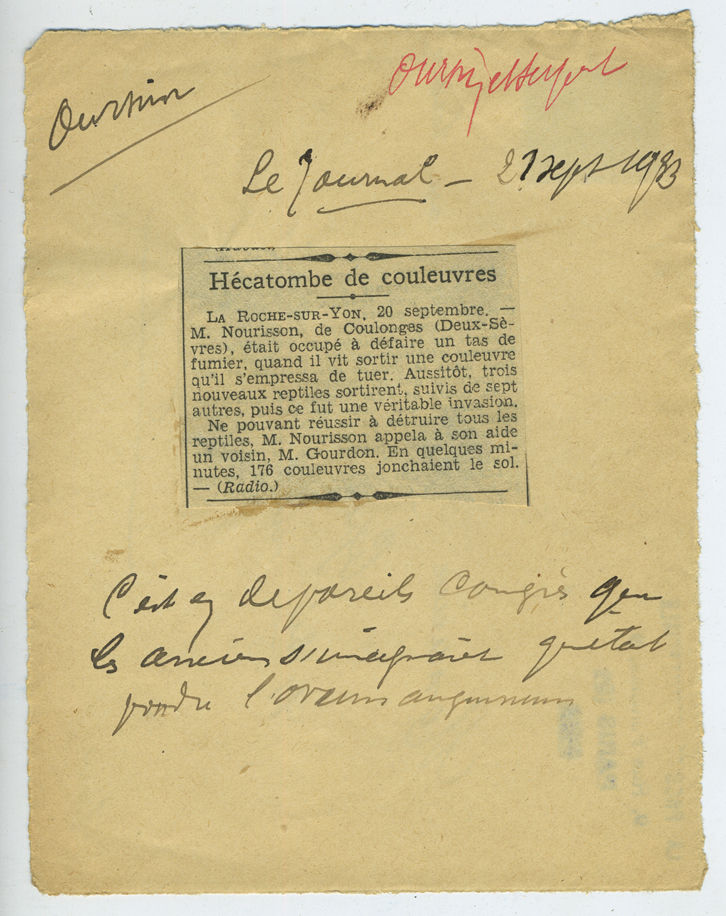 Oursin
Oursin et serpent
Le Journal – 21 sept 1933
Hécatombe de couleuvres
LA ROCHE-SUR-YON, 20 septembre. —
M. Nourisson, de Coulonges (Deux-Sè-
vres), était occupé à défaire un tas de
fumier, quand il vit sortir une couleuvre
qu'il s'empressa de tuer. Aussitôt, trois
nouveaux reptiles sortirent, suivis de sept
autres, puis ce fut une véritable invasion.
Ne pouvant réussir à détruire tous les
reptiles, M. Nourisson appela à son aide
un voisin, M. Gourdon. En quelques mi-
nutes, 176 couleuvres jonchaient le sol.
— (Radio.)
C'est en de pareils congrès que
les anciens s'imaginaient qu'était
pondu l'ovum anguinum